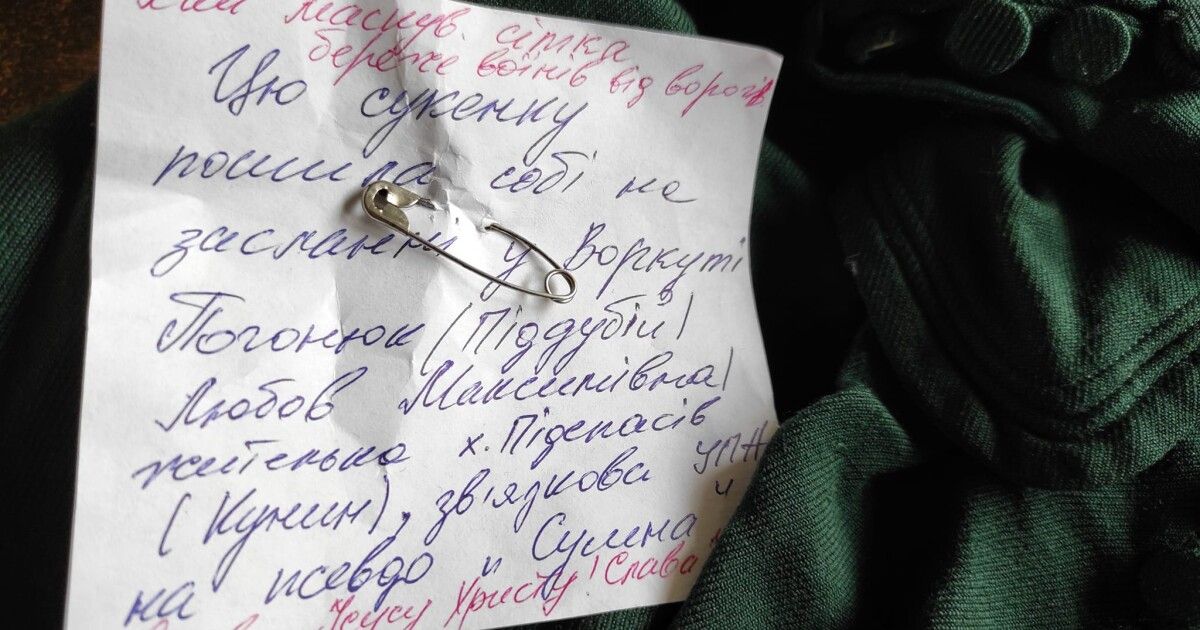 маскув. сітка
береже воїнів від ворогів
Цю сукенку
пошила собі на
засланні у Воркуті
Погонюк (Піддубій)
Любов Максимівна)
жителька х. Підспасів
(Кунин), зв'язкова УПА
на псевдо "Сумна"
Ісусу Христу! Слава